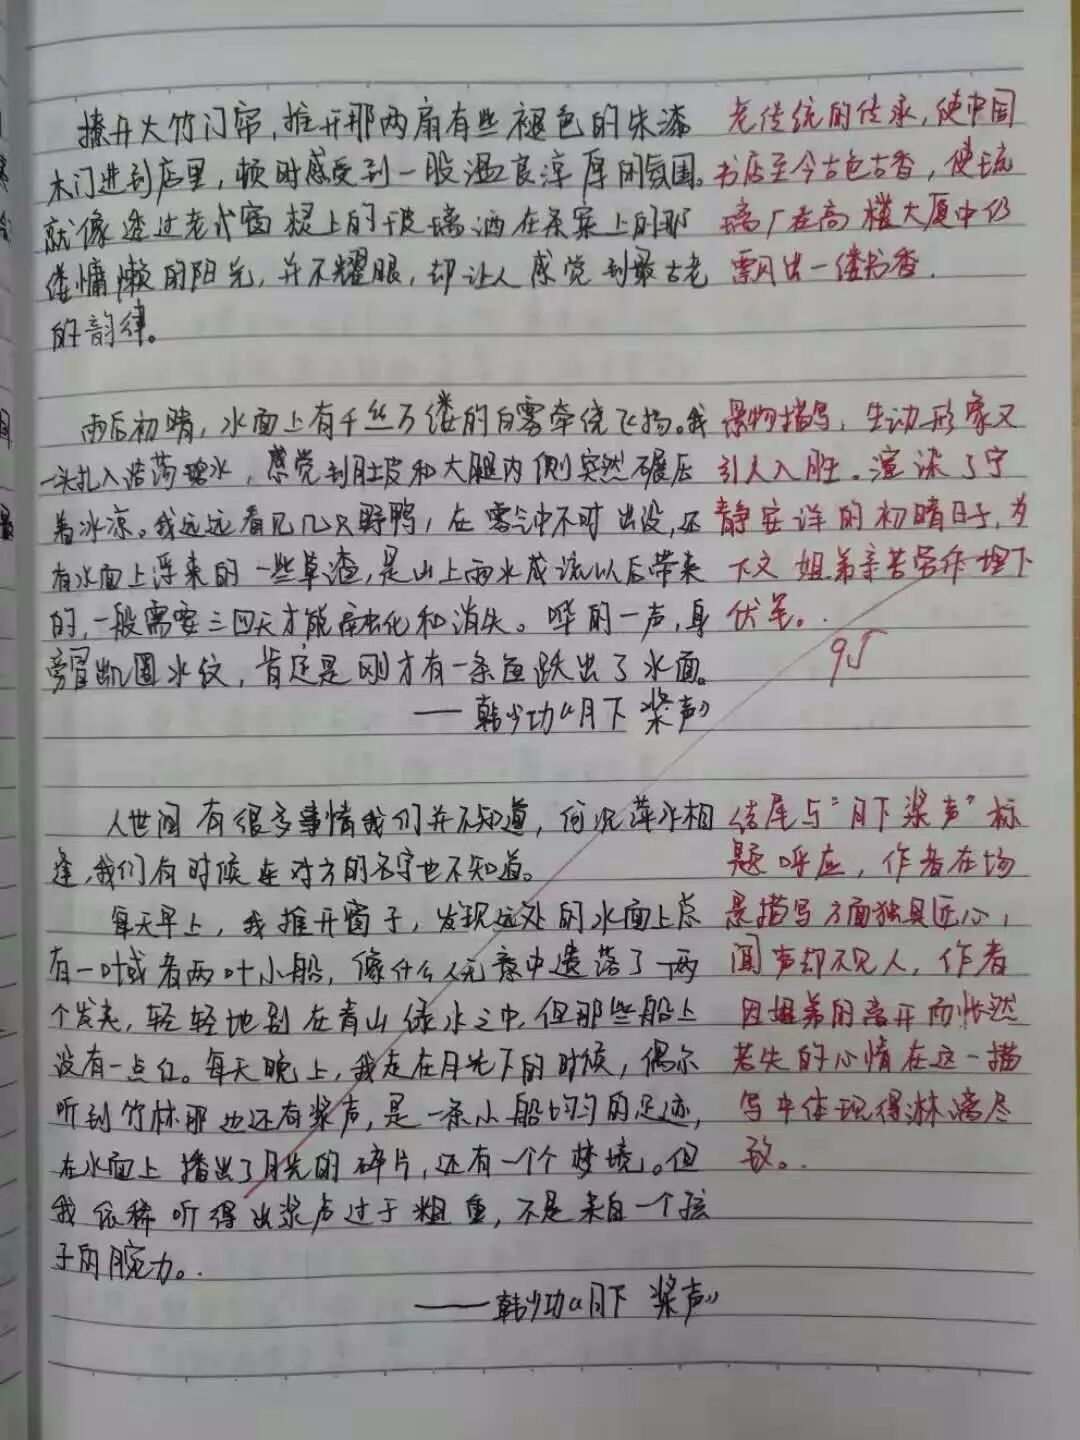 撩开大竹门帘，推开那两扇有些褪色的朱漆
木门进到店里，顿时感受到一股温良淳厚的氛围。
就像透过老式窗棂上的玻璃洒在条案上的那
缕慵懒的阳光，并不耀眼，却让人感觉到最古老
的韵律。
老传统的传承，使中国
书店至今古色古香，使琉
璃厂在高楼大厦中仍
飘出一缕书香.
雨后初晴，水面上有千丝万缕的白雾牵绕飞扬。我
一头扎入浩荡碧水，感觉到肚皮和大腿内侧突然碾压
着冰凉。我远远看见几只野鸭，在雾气中不时出没，还
有水面上浮来的一些草渣，是山上雨水成流以后带来
的，一般需要三四天才能融化和消失。哗的一声，身
旁冒出几圈水纹，肯定是刚才有一条鱼跃出了水面。
——韩少功《月下桨声》
景物描写，生动形象又
引人入胜。渲染了宁
静安详的初晴日子，为
下文姐弟辛苦劳作埋下
伏笔。.
95
人世间有很多事情我们并不知道，何况萍水相
逢，我们有时候连对方的名字也不知道。
每天早上，我推开窗子，发现远处的水面上总
有一叶或者两叶小船，像什么人无意中遗落了一两
个发夹，轻轻地别在青山绿水之中，但那些船上
没有一点红。每天晚上，我走在月光下的时候，偶尔
听到竹林那边还有桨声，是一条小船均匀的足迹，
在水面上播出了月光的碎片，还有一个个梦境。但
我依稀听得出桨声过于粗重，不是来自一个孩
子的腕力。.
——韩少功《月下桨声》
结尾与“月下桨声”标
题呼应，作者在场
景描写方面独具匠心，
闻声却不见人，作者
因姐弟的离开而怅然
若失的心情在这一描
写中体现得淋漓尽
致。.